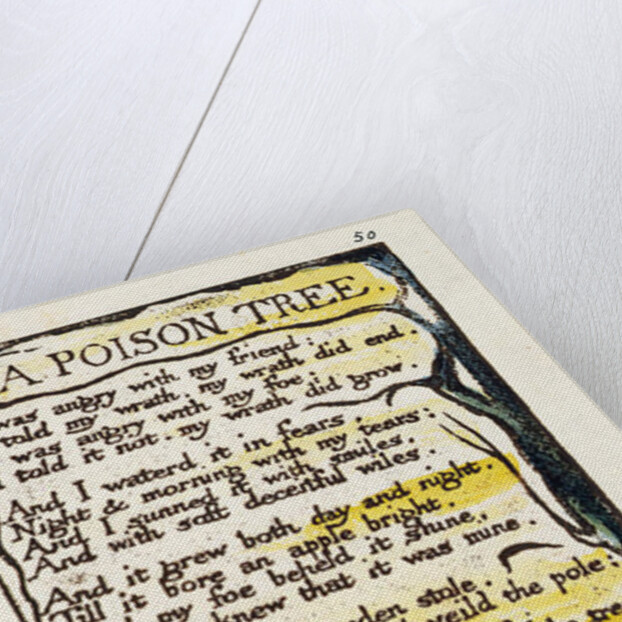 50
A POISON TREE.
was angry with my friend;
told my wrath, my wrath did end.
was angry with my foe:
told it not. my wrath did grow.
And I waterd it in fears.
Night & morning with my tears:
And I sunned it with smiles.
And with soft deceitful wiles.
And it grew both day and night.
Till it bore an apple bright.
my foe beheld it shine.
knew that it was mine.
den stole.
veild the pole;
the tre